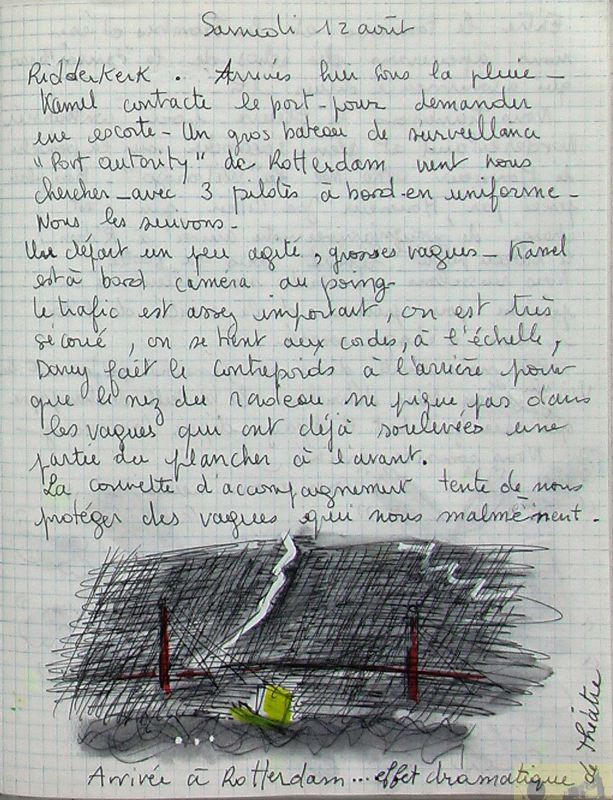 Samedi 12 août
Ridderkerk. Arrivés hier sous la pluie -
Kamel contacte le port - pour demander
une escorte - Un gros bateau de surveillance
"Port autority" de Rotterdam vient nous
chercher - avec 3 pilotes à bord - en uniforme -
Nous les suivons -
Un départ un peu agité, grosses vagues - Kamel
est à bord caméra au poing
le trafic est assez important, on est très
secoué, on se tient aux cordes, à l'échelle,
Dany fait le contrepoids à l'arrière pour
que le nez du radeau ne pique pas dans
les vagues qui ont déjà soulevées une
partie du plancher à l'avant.
La corvette d'accompagnement tente de nous
protéger des vagues qui nous malmènent.
Arrivée à Rotterdam... effet dramatique
de théâtre